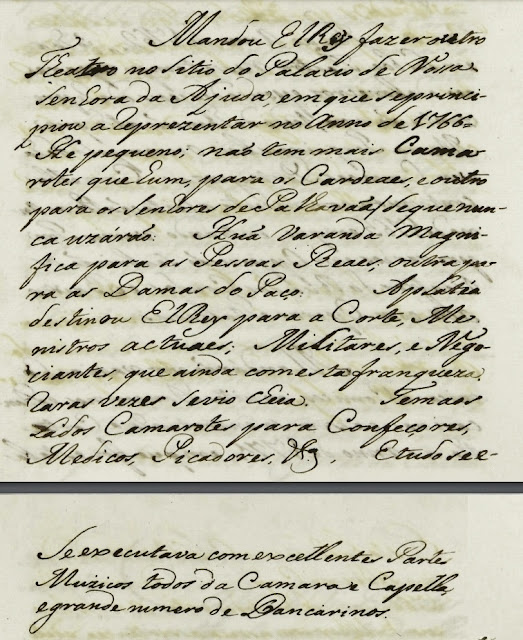 Mandou ElRey fazer outro
Theatro no sitio do Palacio de Nossa
Senhora da Ajuda, em que se princi-
piou a reprezentar no Anno de 1766.
He pequeno; naõ tem mais Cama-
rotes que hum, para os Cardeaes, e outro
para os Senhores de Palhavaã/de que nun-
ca uzáraõ. Huã Varanda Magni-
fica para as Pessoas Reaes, outra pa-
ra as Damas do Paço. A platéa
destinou ElRey para a Corte, Me-
nistros actuaes, Militares, e Nego-
ciantes, que ainda com esta franqueza,
raras vezes se vio cheia. Tem aos
Lados Camarotes para Confeçores,
Medicos, Picadores, &ª. E tudo se e-
Se executava com excellentes Partes
Muzicos todos da Camara e Capella
e grande numero de Dancarinos.